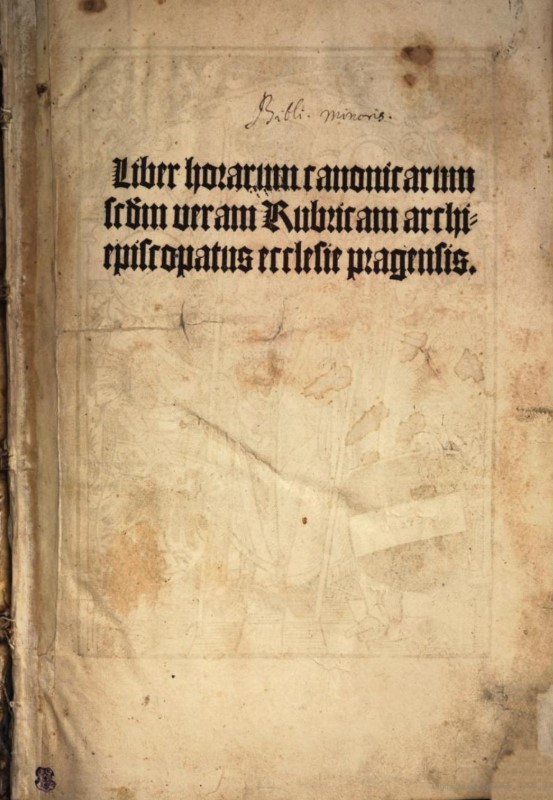 Bibli. minoris.
Liber horarum canonicarum
scdm veram Rubricam archi-
episcopatus ecclesie pragensis.